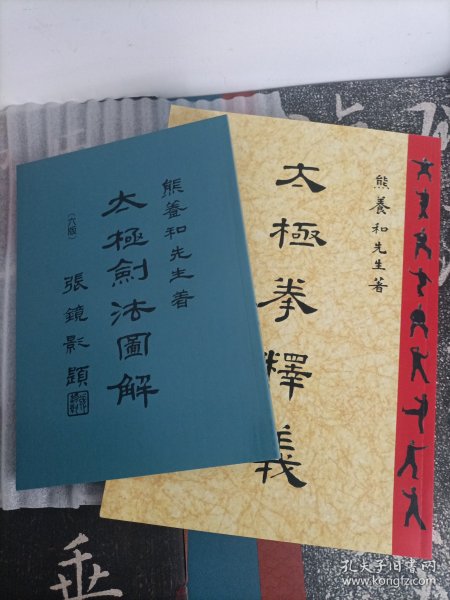 熊養和先生著
太極劍法圖解
(六版)
張鏡影題
熊養和先生著
太極拳釋義
垂
孔夫子旧书网
www.kongfz.com